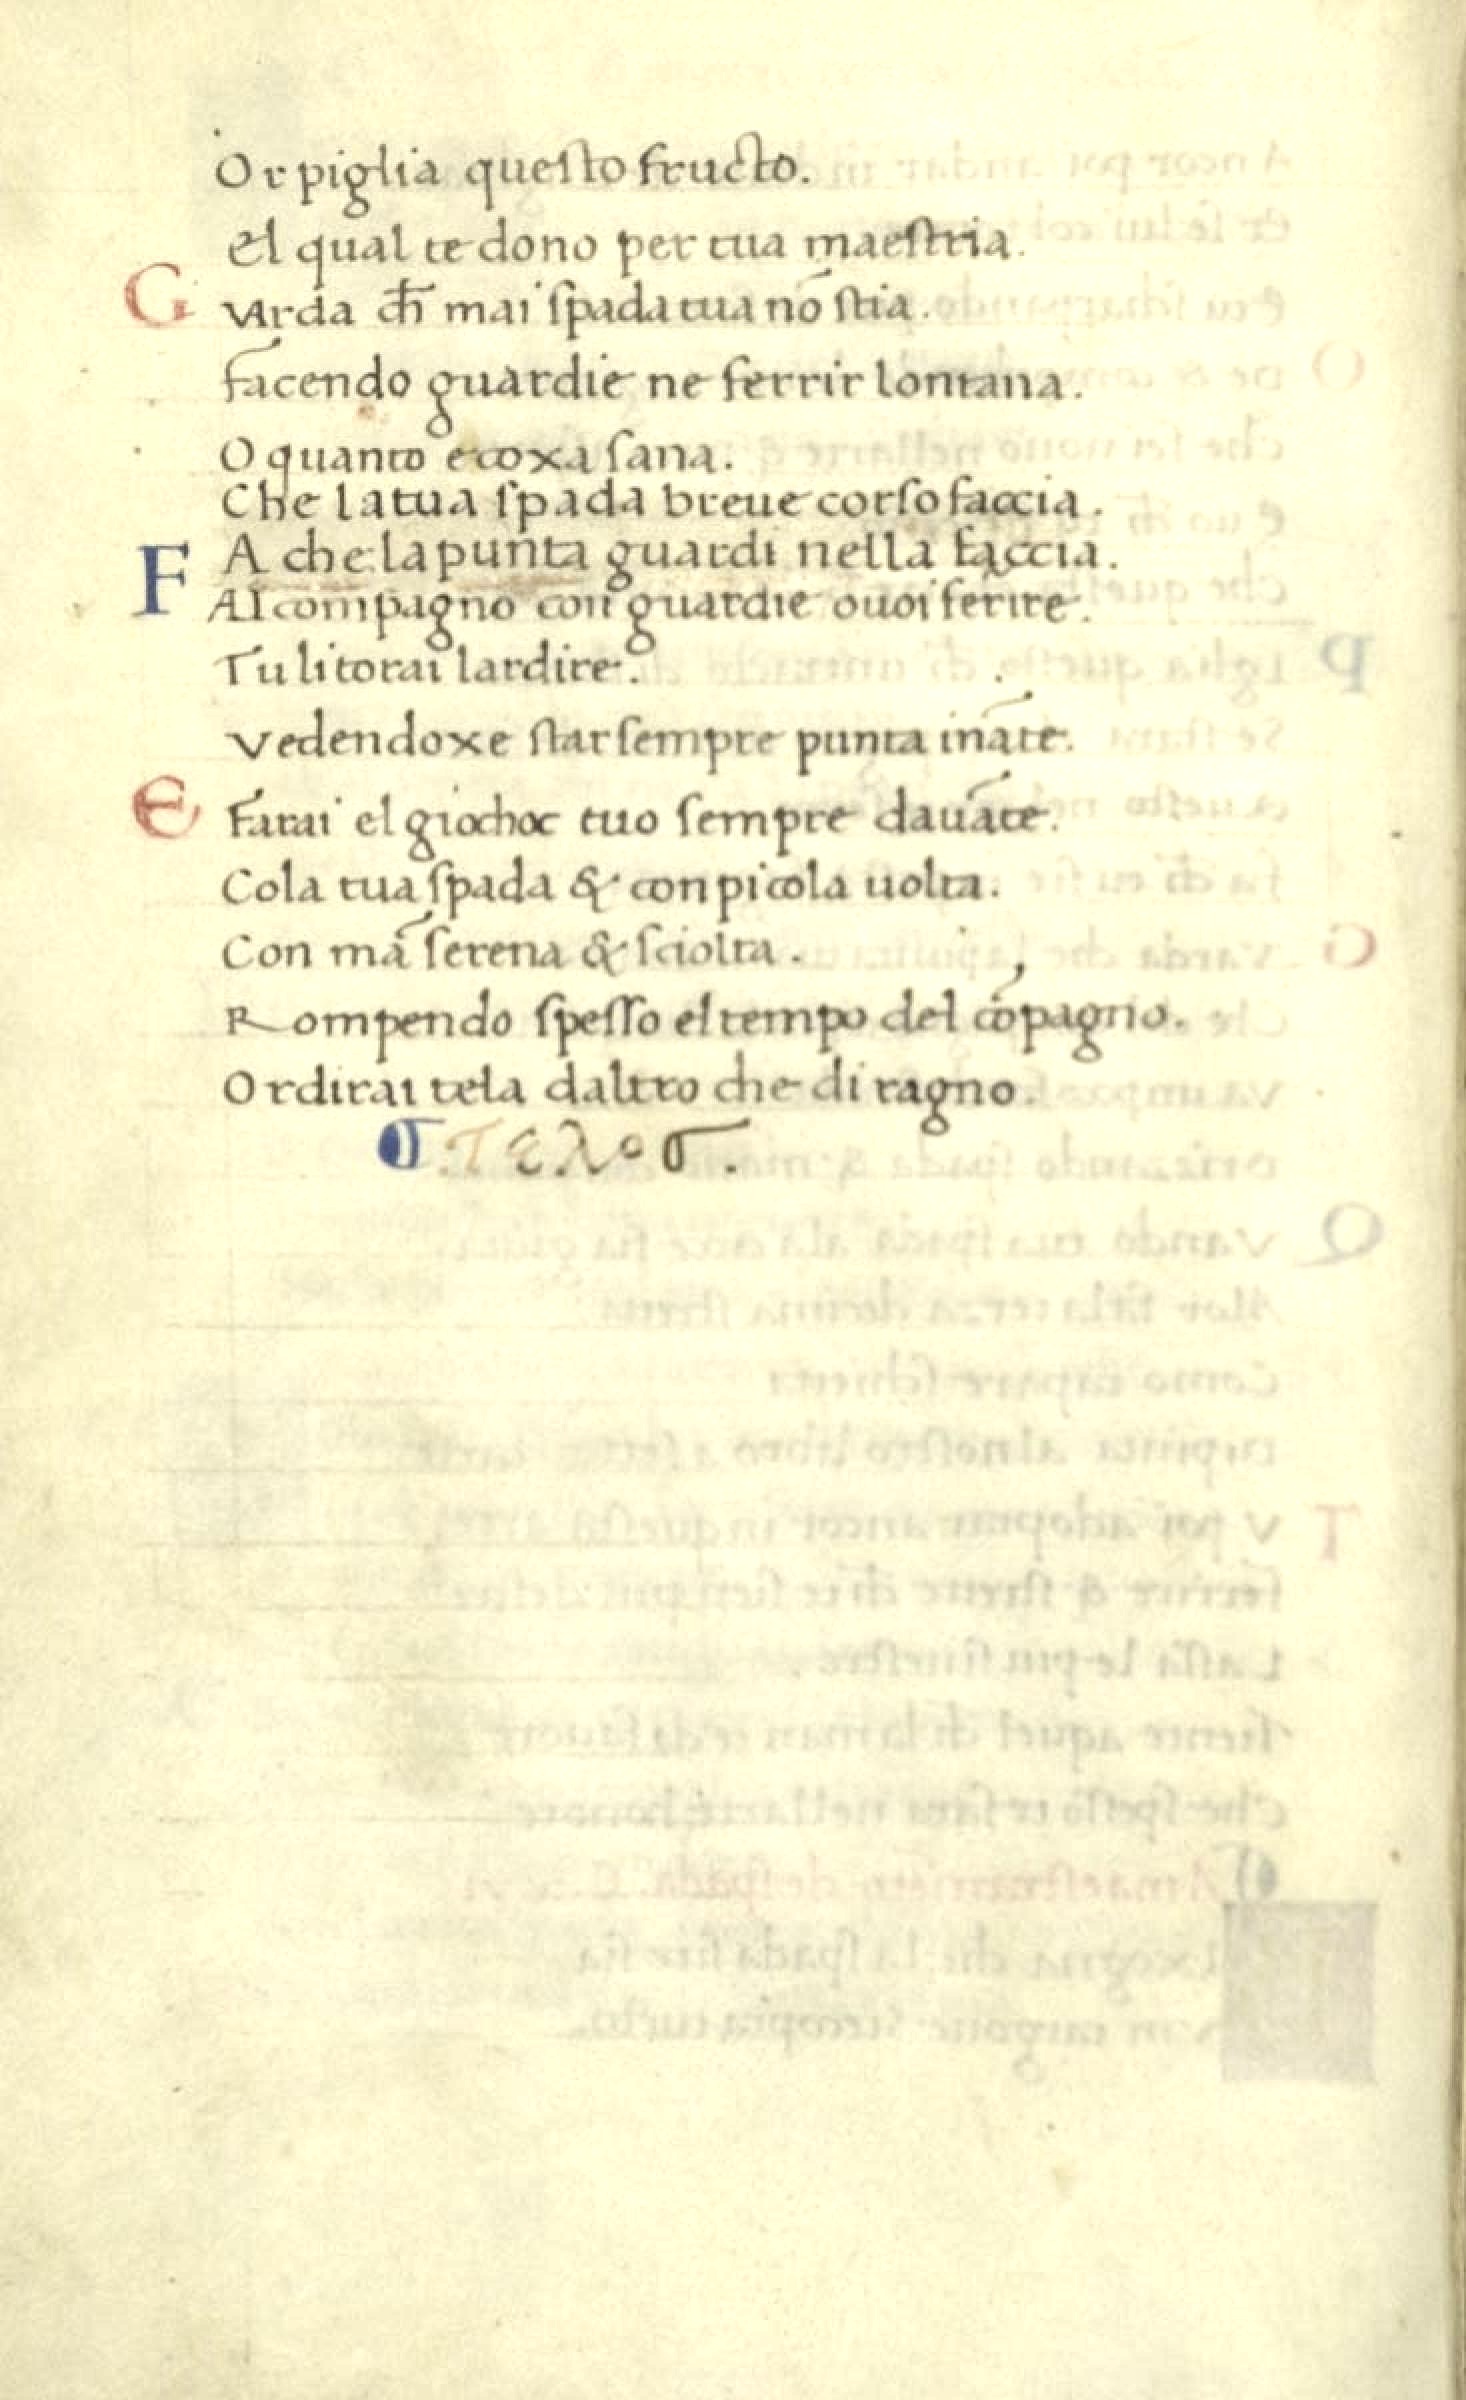 Or piglia questo fructo.
El qual te dono per tua maestria.
G varda ch̄ mai spada tua nō stia.
facendo guardie ne ferrir lontana.
O quanto e coxa sana.
Che la tua spada breue corso faccia.
F A che la punta guardi nella faccia.
Al compagno con guardie o uoi ferire.
Tu li torai lardire.
Vedendoxe star sempre punta ināte.
E farai el giocho tuo sempre dauāte.
Cola tua spada & con picola uolta.
Con mā serena & sciolta.
Rompendo spesso el tempo del cōpagno.
Ordirai tela daltro che di ragno.
¶ .Τελοσ.